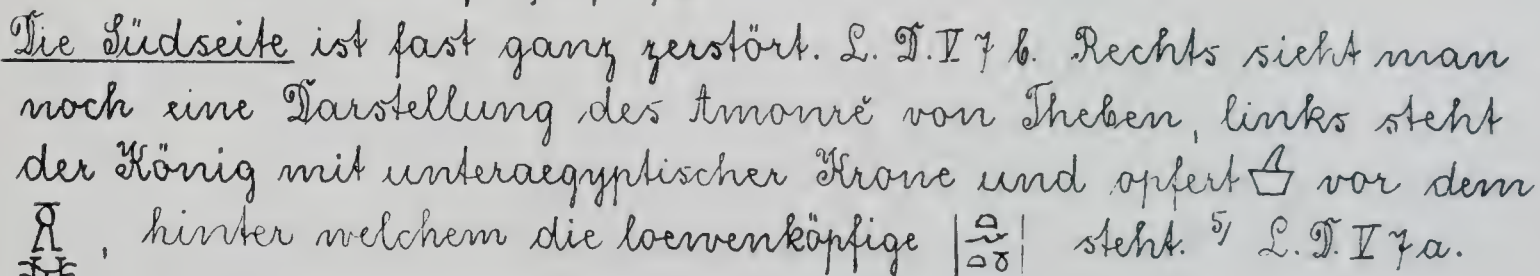 Die Südseite ist fast ganz zerstört. L. D. V 7 b. Rechts sieht man
noch eine Darstellung des Amonrě von Theben, links steht
der König mit unteraegyptischer Krone und opfert vor dem
, hinter welchem die loewenköpfige steht. 5) L. D. V 7a.